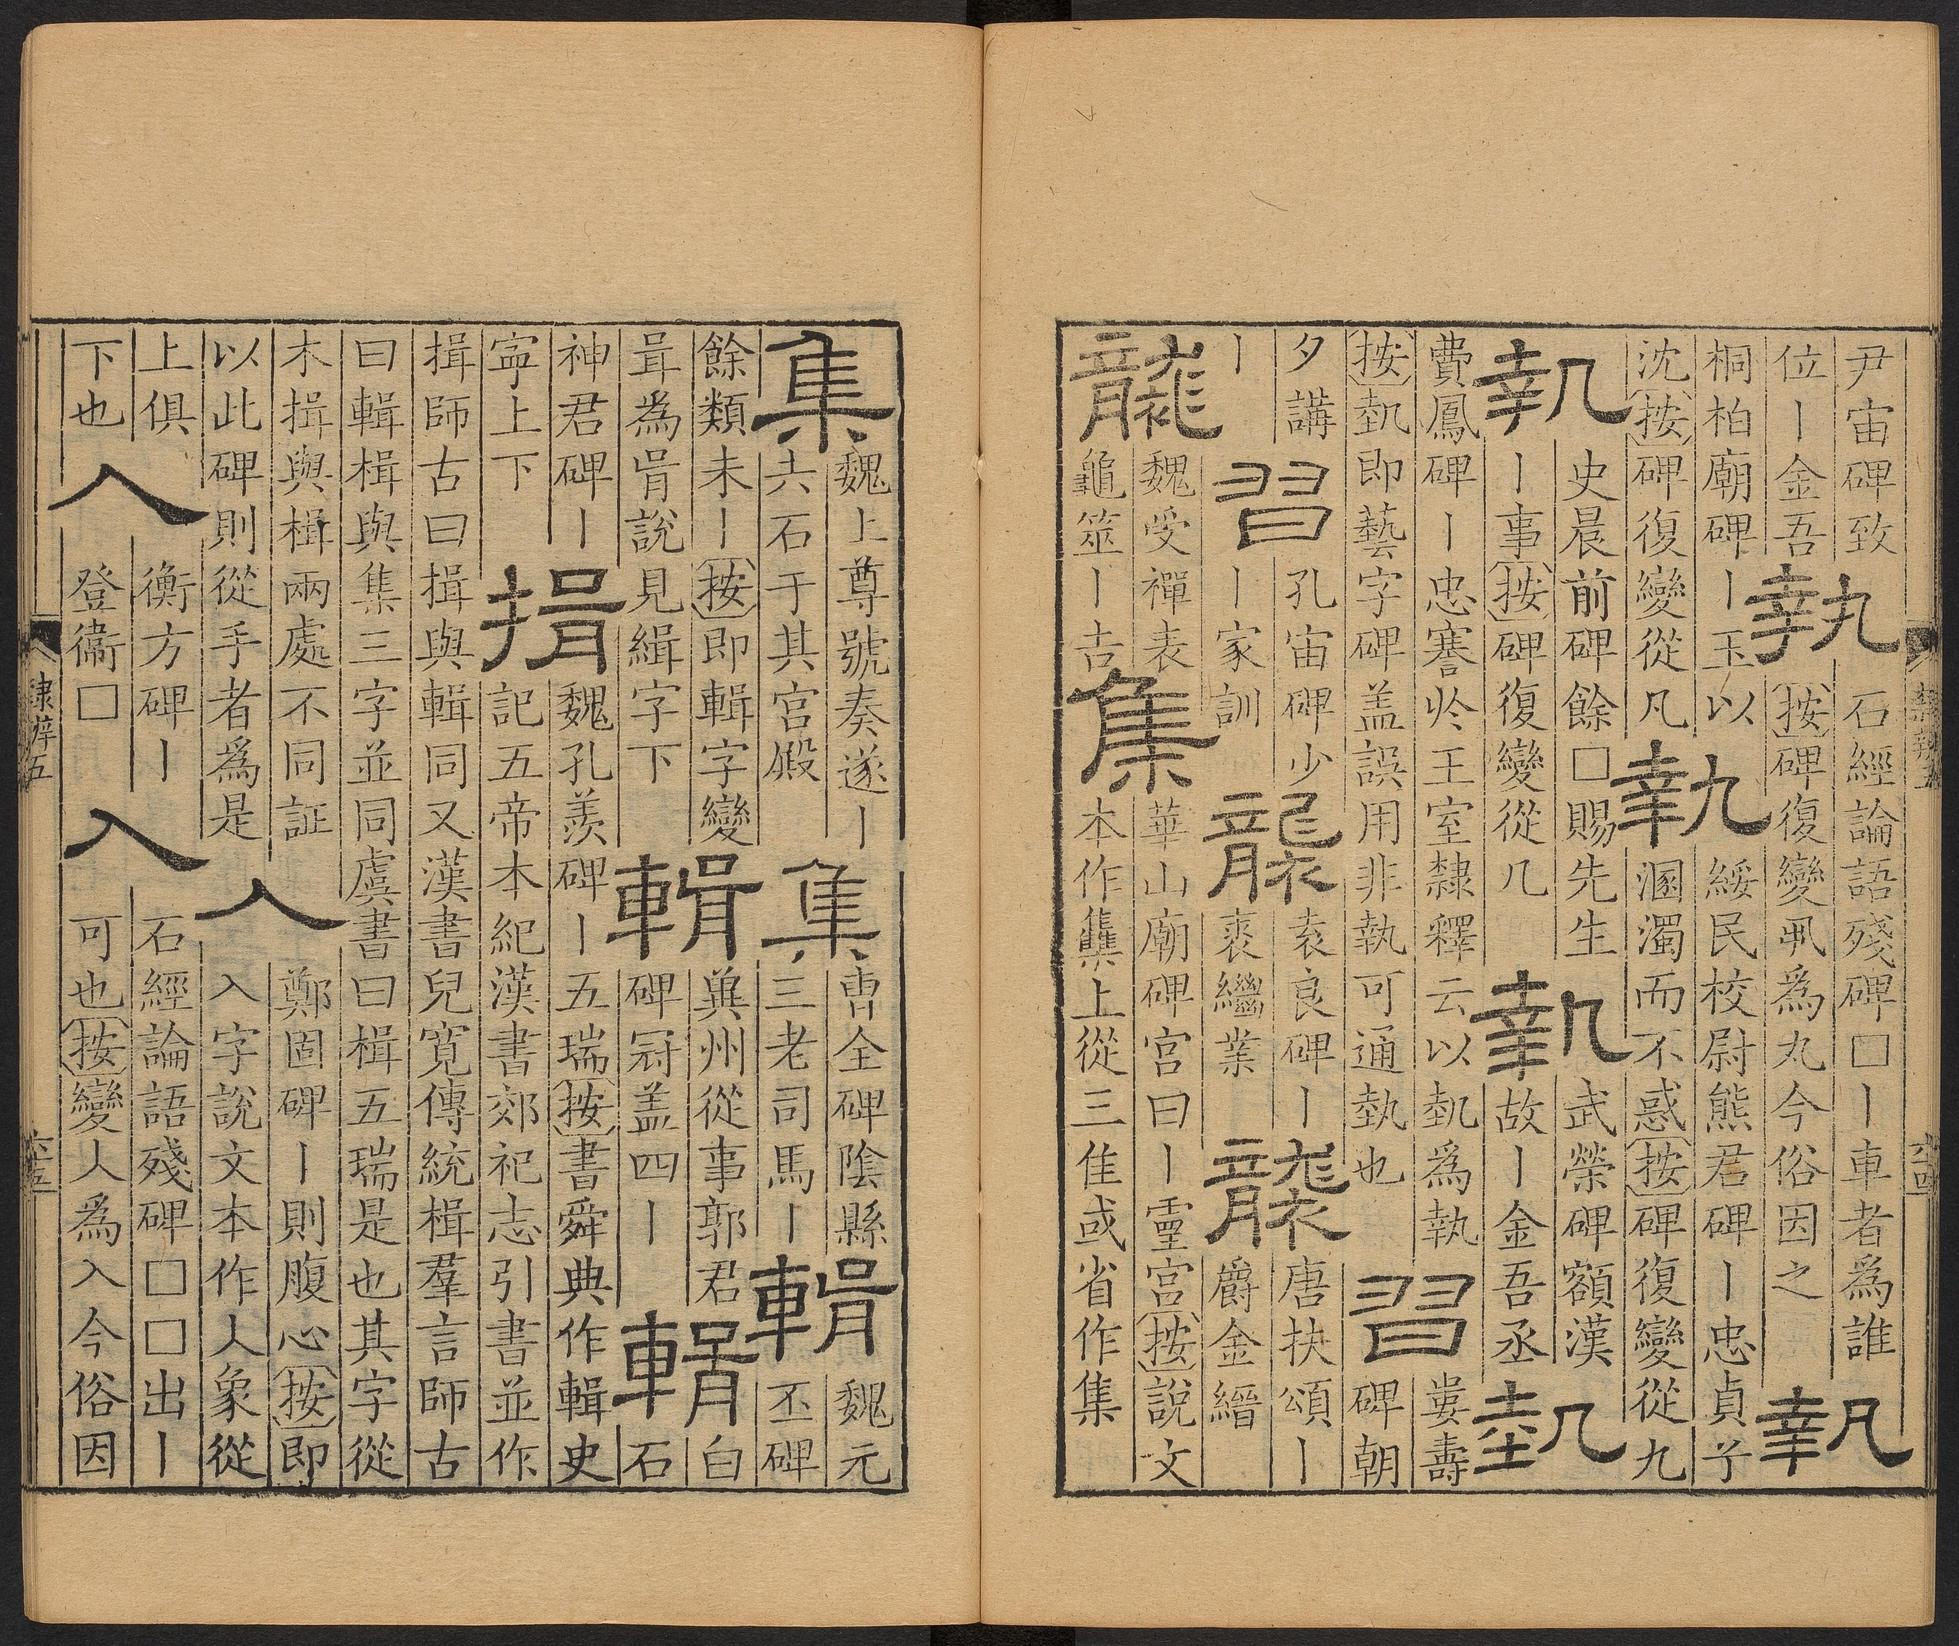 尹宙碑致
位丨金吾
執
石經論語殘碑□丨車者爲誰
按碑復變丮為丸今俗因之
執
桐柏廟碑丨玉以
沈按碑復變從凡
執
綏民校尉熊君碑丨忠貞子
溷濁而不惑按碑復變從九
執
史晨前碑餘□賜先生
丨事按碑復變從几
執
武榮碑額漢
故丨金吾丞
埶
費鳳碑丨忠謇於王室隸釋云以埶為執
按埶即藝字碑盖誤用非執可通埶也
習
婁壽
碑朝
夕講
丨
習
孔宙碑少
丨家訓
襲
袁良碑丨
裘繼業
襲
唐扶頌丨
爵金縉
襲
魏受禪表
龜筮丨吉
集
華山廟碑宮曰丨靈宮按說文
本作雧上從三隹或省作集
集
魏上尊號奏遂丨
共石于其宮殿
集
曹全碑陰縣
三老司馬丨
輯
魏元
丕碑
餘類未丨按即輯字變
咠為肙說見緝字下
輯
冀州從事郭君
碑冠盖四丨
輯
白
石
神君碑丨
寧上下
揖
魏孔羨碑丨五瑞按書舜典作輯史
記五帝本紀漢書郊祀志引書並作
揖師古曰揖與輯同又漢書兒寬傳統楫羣言師古
曰輯楫與集三字並同虞書曰楫五瑞是也其字從
木揖與楫兩處不同証
以此碑則從手者為是
入
鄭固碑丨則腹心按即
入字說文本作人象從
上俱
下也
入
衡方碑丨
登衞□
入
石經論語殘碑□□出丨
可也按變人為入今俗因
隸辨五
六十五